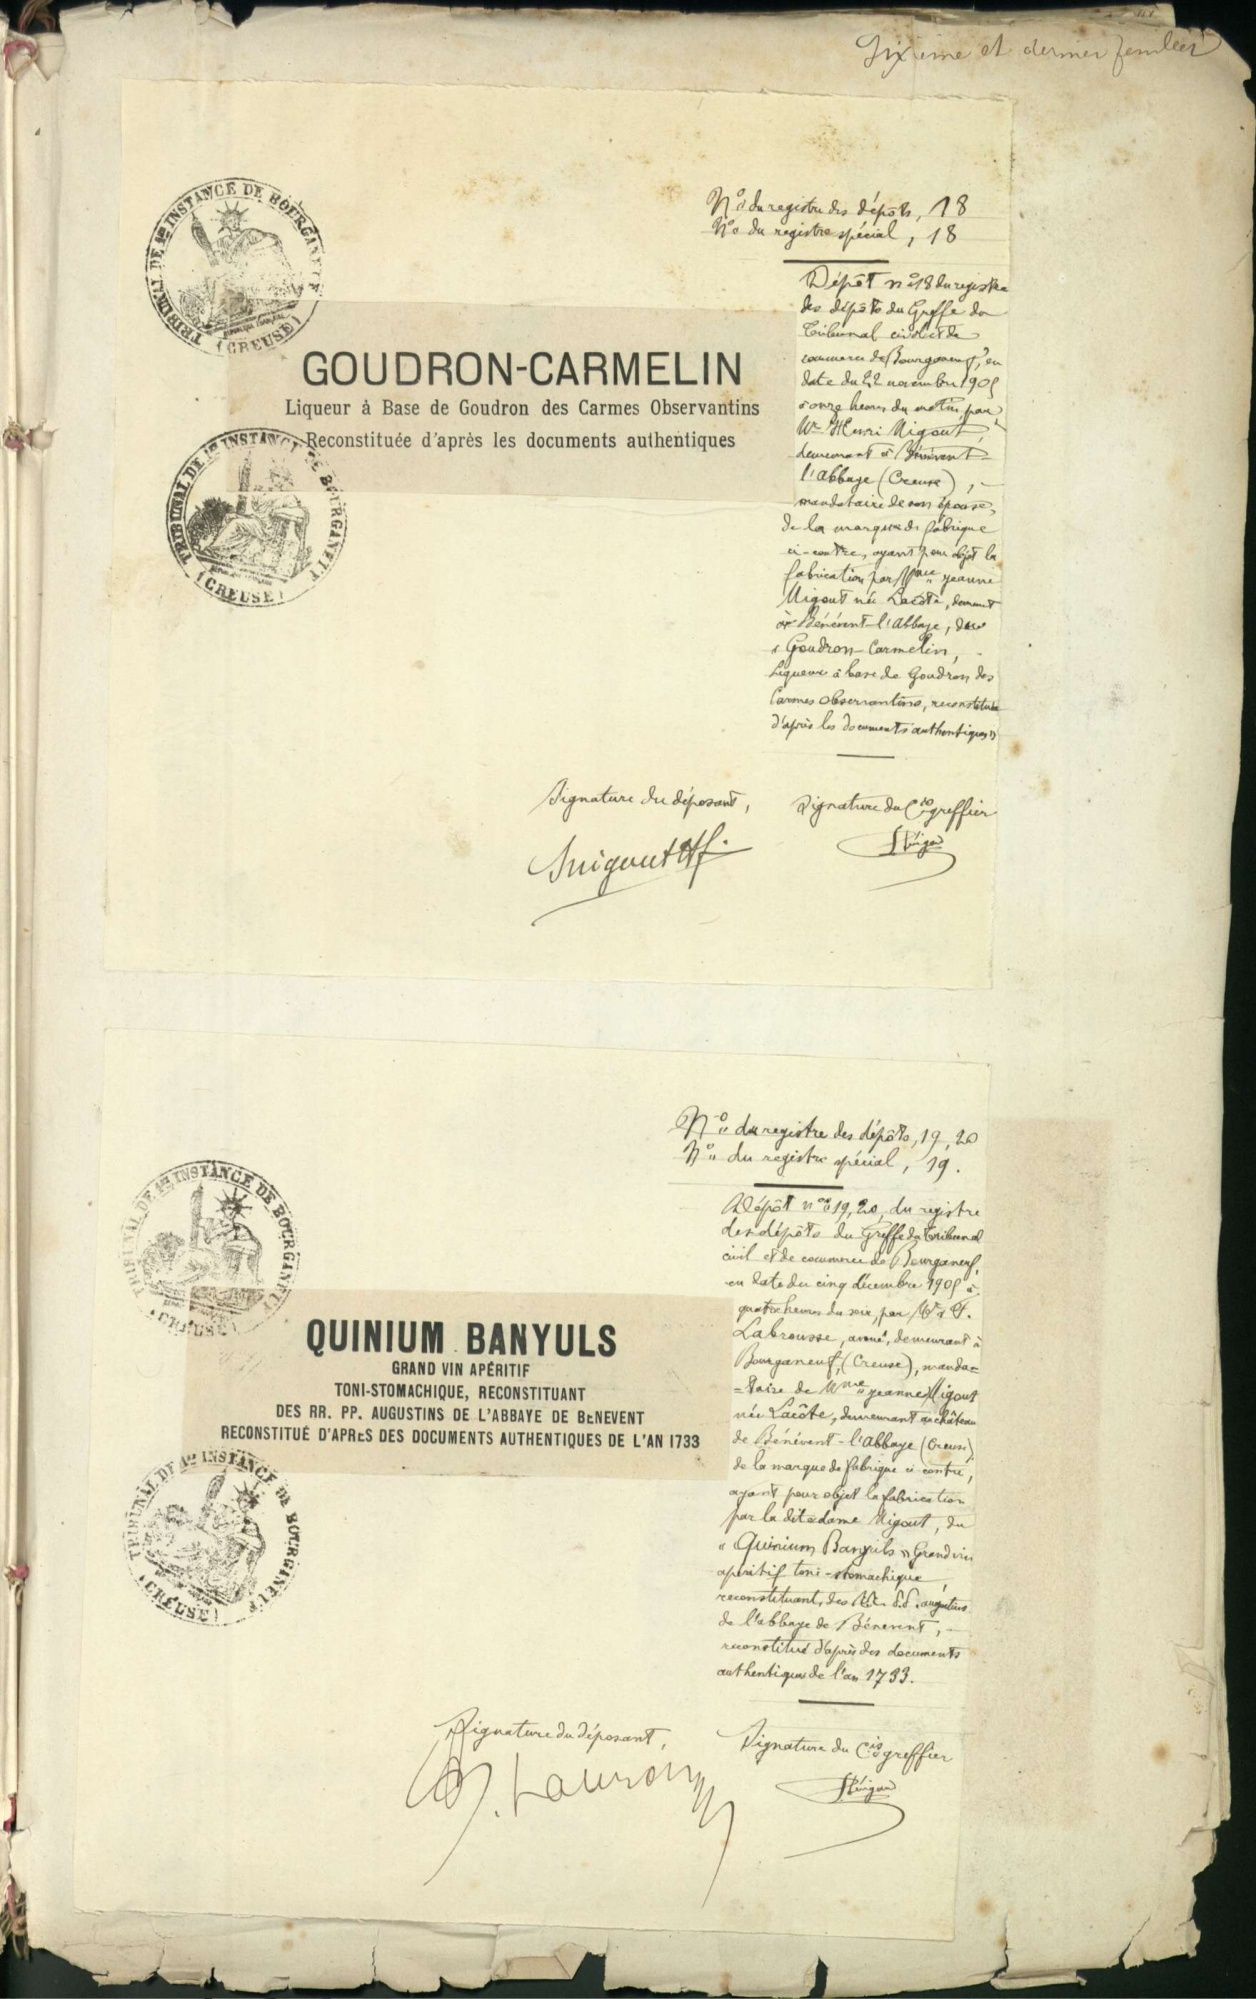 Sixième et dernier feuillet
TRIBUNAL DE 1re INSTANCE DE BOURGANEUF
(CREUSE)
No du registre des dépôts, 18
No du registre spécial, 18
GOUDRON-CARMELIN
Liqueur à Base de Goudron des Carmes Observantins
Reconstituée d'après les documents authentiques
TRIBUNAL DE 1re INSTANCE DE BOURGANEUF
(CREUSE)
Dépôt no 18 du registre
des dépôts du Greffe du
Tribunal civil et de
commerce de Bourganeuf, en
date du 22 novembre 1905
à onze heures du matin, par
Mr Henri Migout,
demeurant à Bénévent-
l'Abbaye (Creuse),
mandataire de son épouse,
de la marque de fabrique
ci-contre, ayant pour objet la
fabrication par Mme Jeanne
Migout née Lacôte, demeurant
à Bénévent-l'Abbaye, du
« Goudron-Carmelin,
Liqueur à base de Goudron des
Carmes Observantins, reconstituée
d'après les documents authentiques »
Signature du déposant,
Signature du Cis greffier
Migout H.
No du registre des dépôts, 19, 20
No du registre spécial, 19.
TRIBUNAL DE 1re INSTANCE DE BOURGANEUF
(CREUSE)
QUINIUM BANYULS
GRAND VIN APÉRITIF
TONI-STOMACHIQUE, RECONSTITUANT
DES RR. PP. AUGUSTINS DE L'ABBAYE DE BENEVENT
RECONSTITUÉ D'APRES DES DOCUMENTS AUTHENTIQUES DE L'AN 1733
TRIBUNAL DE 1re INSTANCE DE BOURGANEUF
(CREUSE)
Dépôt nos 19, 20, du registre
des dépôts du Greffe du Tribunal
civil et de commerce de Bourganeuf,
en date du cinq décembre 1905 à
quatre heures du soir, par Mr
Labrousse, avoué, demeurant à
Bourganeuf, (Creuse), manda=
=taire de Mme Jeanne Migout
née Lacôte, demeurant au château
de Bénévent-l'Abbaye (Creuse),
de la marque de fabrique ci contre,
ayant pour objet la fabrication
par la dite dame Migout, du
« Quinium Banyuls » Grand vin
apéritif toni-stomachique
reconstituant, des augustins
de l'abbaye de Bénévent,
reconstitué d'après des documents
authentiques de l'an 1733.
Signature du déposant,
Signature du Cis greffier